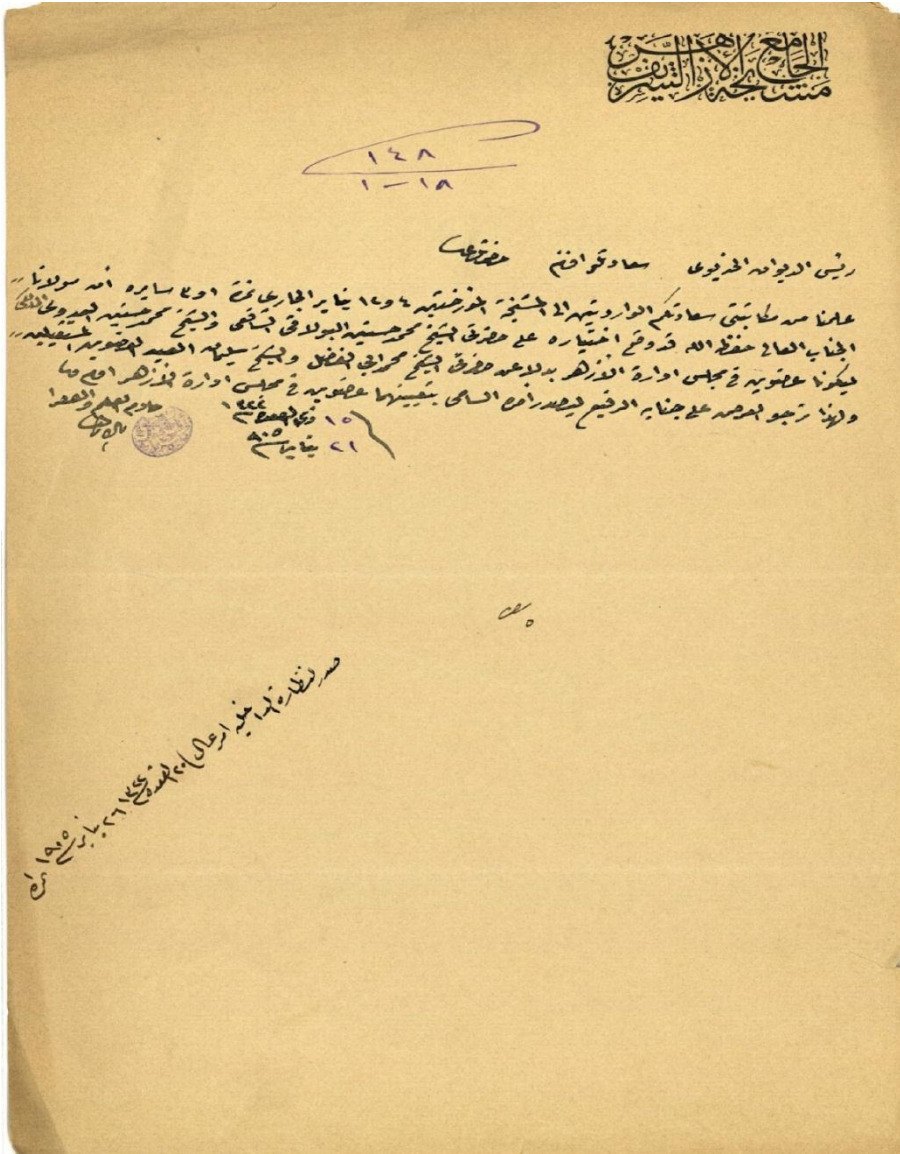 مشيخة الجامع الأزهر الشريف
١٤٨
١٨-١
رئيس الديوان الخديوى سعادتلو افندم حضرتلرى
علمنا من مكاتبتى سعادتكم الواردتين الى المشيخة المؤرختين ٤ و١٢ يناير الجارى نمرة ١ و٣ سايره ان مولانا
الجناب العالى حفظه الله قد وقع اختياره على حضرتى الشيخ محمد حسنين البولاقى الشافعى والشيخ محمد حسنين العدوى المالكى
ليكونا عضوين فى مجلس ادارة الازهر بدلا عن حضرتى الشيخ محمد ابى الفضل والشيخ سليمان العبد العضوين المستقيلين
ولهذا نرجو العرض على جنابه الرفيع ليصدر أمره السامى بتعيينهما عضوين فى مجلس ادارة الازهر افندم
١٥ ذى القعدة سنة ١٣٢٢
٢١ يناير سنة ٩٠٥
خادم العلم والفقرا
بالازهر
صدر لنظارة الداخلية امر عالى ٢٠ القعدة سنة ١٣٢٢
٢٦ يناير سنة ١٩٠٥ نمرة